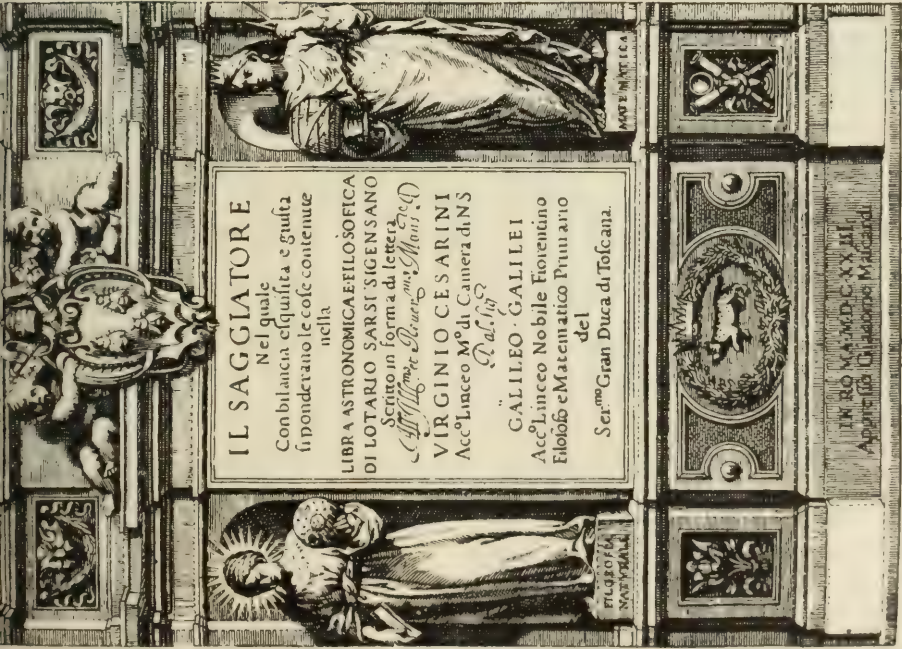 IL SAGGIATORE
Nel quale
Con bilancia esquisita e giusta
si ponderano le cose contenute
nella
LIBRA ASTRONOMICA E FILOSOFICA
DI LOTARIO SARSI SIGENSANO
Scritto in forma di lettera
All' Ill.mo et Reuer.mo Mons.re D.
VIRGINIO CESARINI
Acc.o Linceo M.o di Camera di N.S.
Dal Sig.r
GALILEO · GALILEI
Acc.o Linceo Nobile Fiorentino
Filosofo e Matematico Primario
del
Ser.mo Gran Duca di Toscana.
FILOSOFIA
NATVRALE
MATEMATICA
IN ROMA M.D.C.XXIII
Appresso Giacomo Mascardi